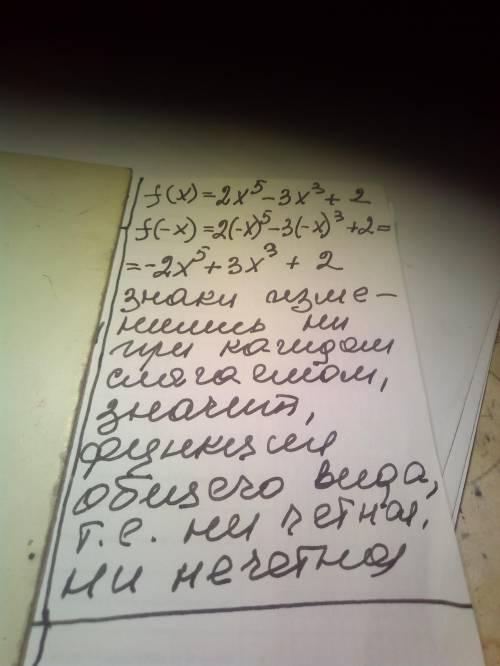 f(x)=2x⁵-3x³+2
f(-x)=2(-x)⁵-3(-x)³+2=
=-2x⁵+3x³+2
знаки изме-
нились ни
при каждом
слагаемом,
значит,
функции
общего вида,
т.е. ни четная,
ни нечетная